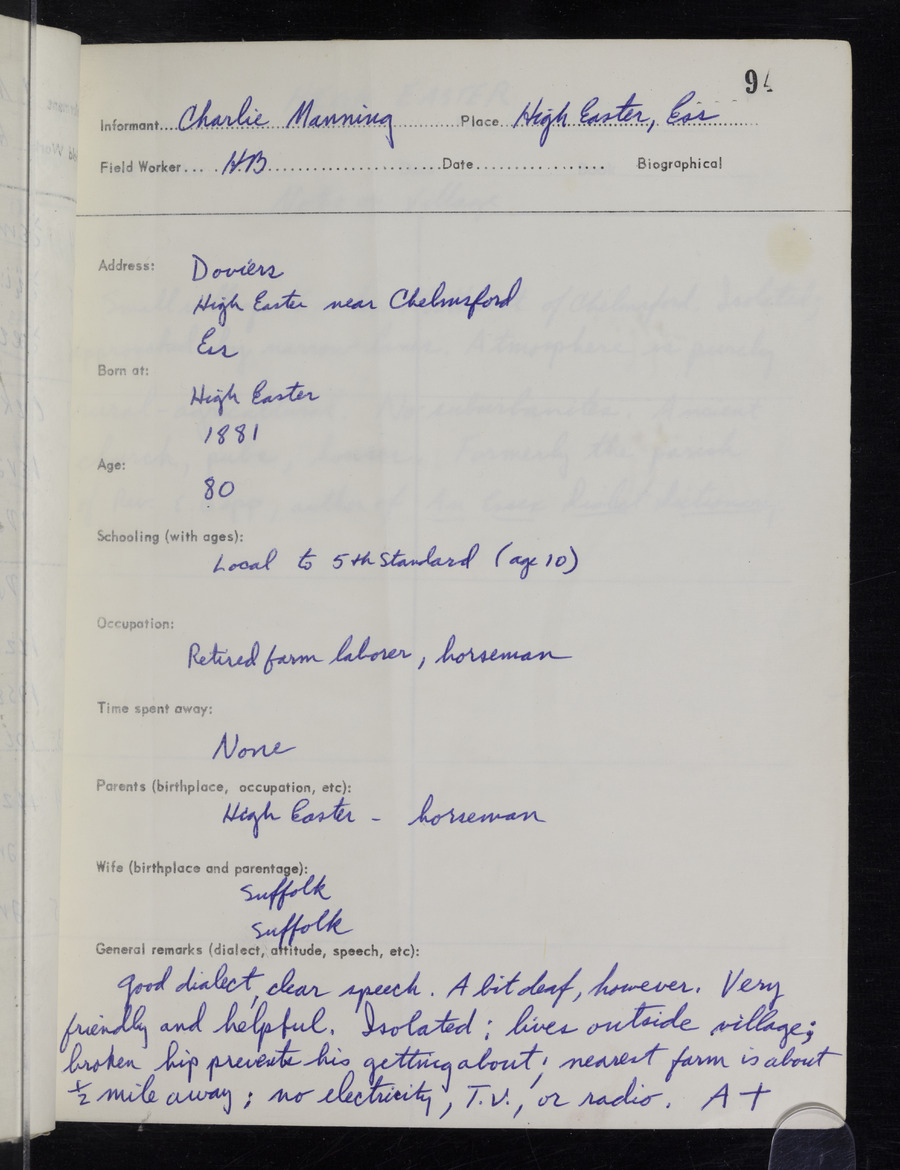 94
Informant...Charlie Manning...............Place...High Easter, Ess......
Field Worker.... HB.........................Date.................. Biographical
Address:
Doviers
High Easter near Chelmsford
Ess
Born at:
High Easter
1881
Age:
80
Schooling (with ages):
Local to 5th Standard (age 10)
Occupation:
Retired farm laborer, horseman
Time spent away:
None
Parents (birthplace, occupation, etc):
High Easter - horseman
Wife (birthplace and parentage):
Suffolk
Suffolk
General remarks (dialect, attitude, speech, etc):
Good dialect, clear speech. A bit deaf, however. Very
friendly and helpful. Isolated; lives outside village;
broken hip prevents his getting about; nearest farm is about
½ mile away; no electricity, T.V., or radio. A +